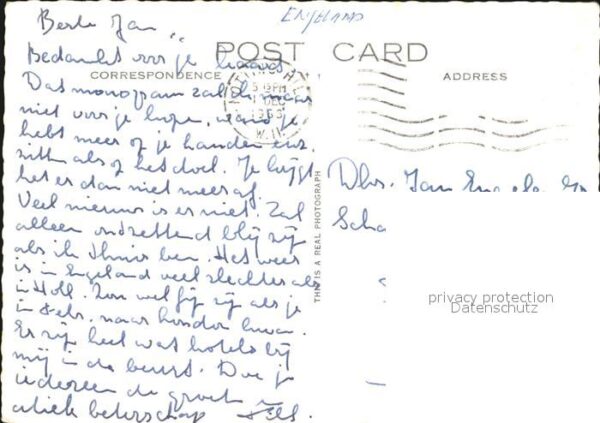 ENGELAND
POST CARD
CORRESPONDENCE
ADDRESS
Beste Jan,
Bedankt voor je kaart.
Das monogram zal ik maar
niet voor je kopen, want je
hebt meer of je handen enz.
zitten als of het doel. Je krijgt
het er dan niet meer af.
Veel nieuws is er niet. Zal
alleen ontzettend blij zijn
als ik thuis ben. Het weer
is in Engeland veel slechter als
in Holl. Zou wel fijn zijn als je
in Febr. naar Londen kwam.
Er zijn heel wat hotels bij
mij in de buurt. Doe je
iedereen de groeten
beterschap
NOTTING HILL
5 15 PM
1 DEC
1965
W.11
THIS IS A REAL PHOTOGRAPH
Dhr. Jan
Scha
privacy protection
Datenschutz